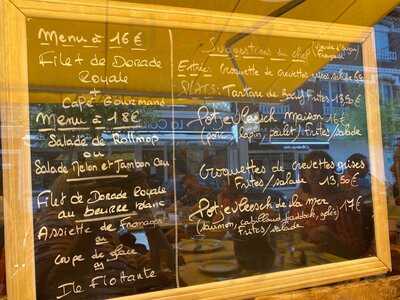 Menu à 16€
Filet de Dorade
Royale
+
Café Gourmand
Menu à 18€
Salade de Rollmop
ou
Salade Melon et Jambon Cru
Filet de Dorade Royale
au beurre blanc
Assiette de Fromages
ou
coupe de glace
ou
Ile Flottante
Suggestions du chef
Entrée: Croquette de crevettes grises
PLATS: Tartare de Boeuf Frites 13,50€
Potjevleesch Maison 16€
(porc, lapin, poulet) frites/salade
Croquettes de crevettes grises
Frites/salade 13,50€
Potjevleesch de la mer 17€
(saumon, cabillaud, haddock,
Frites/salade